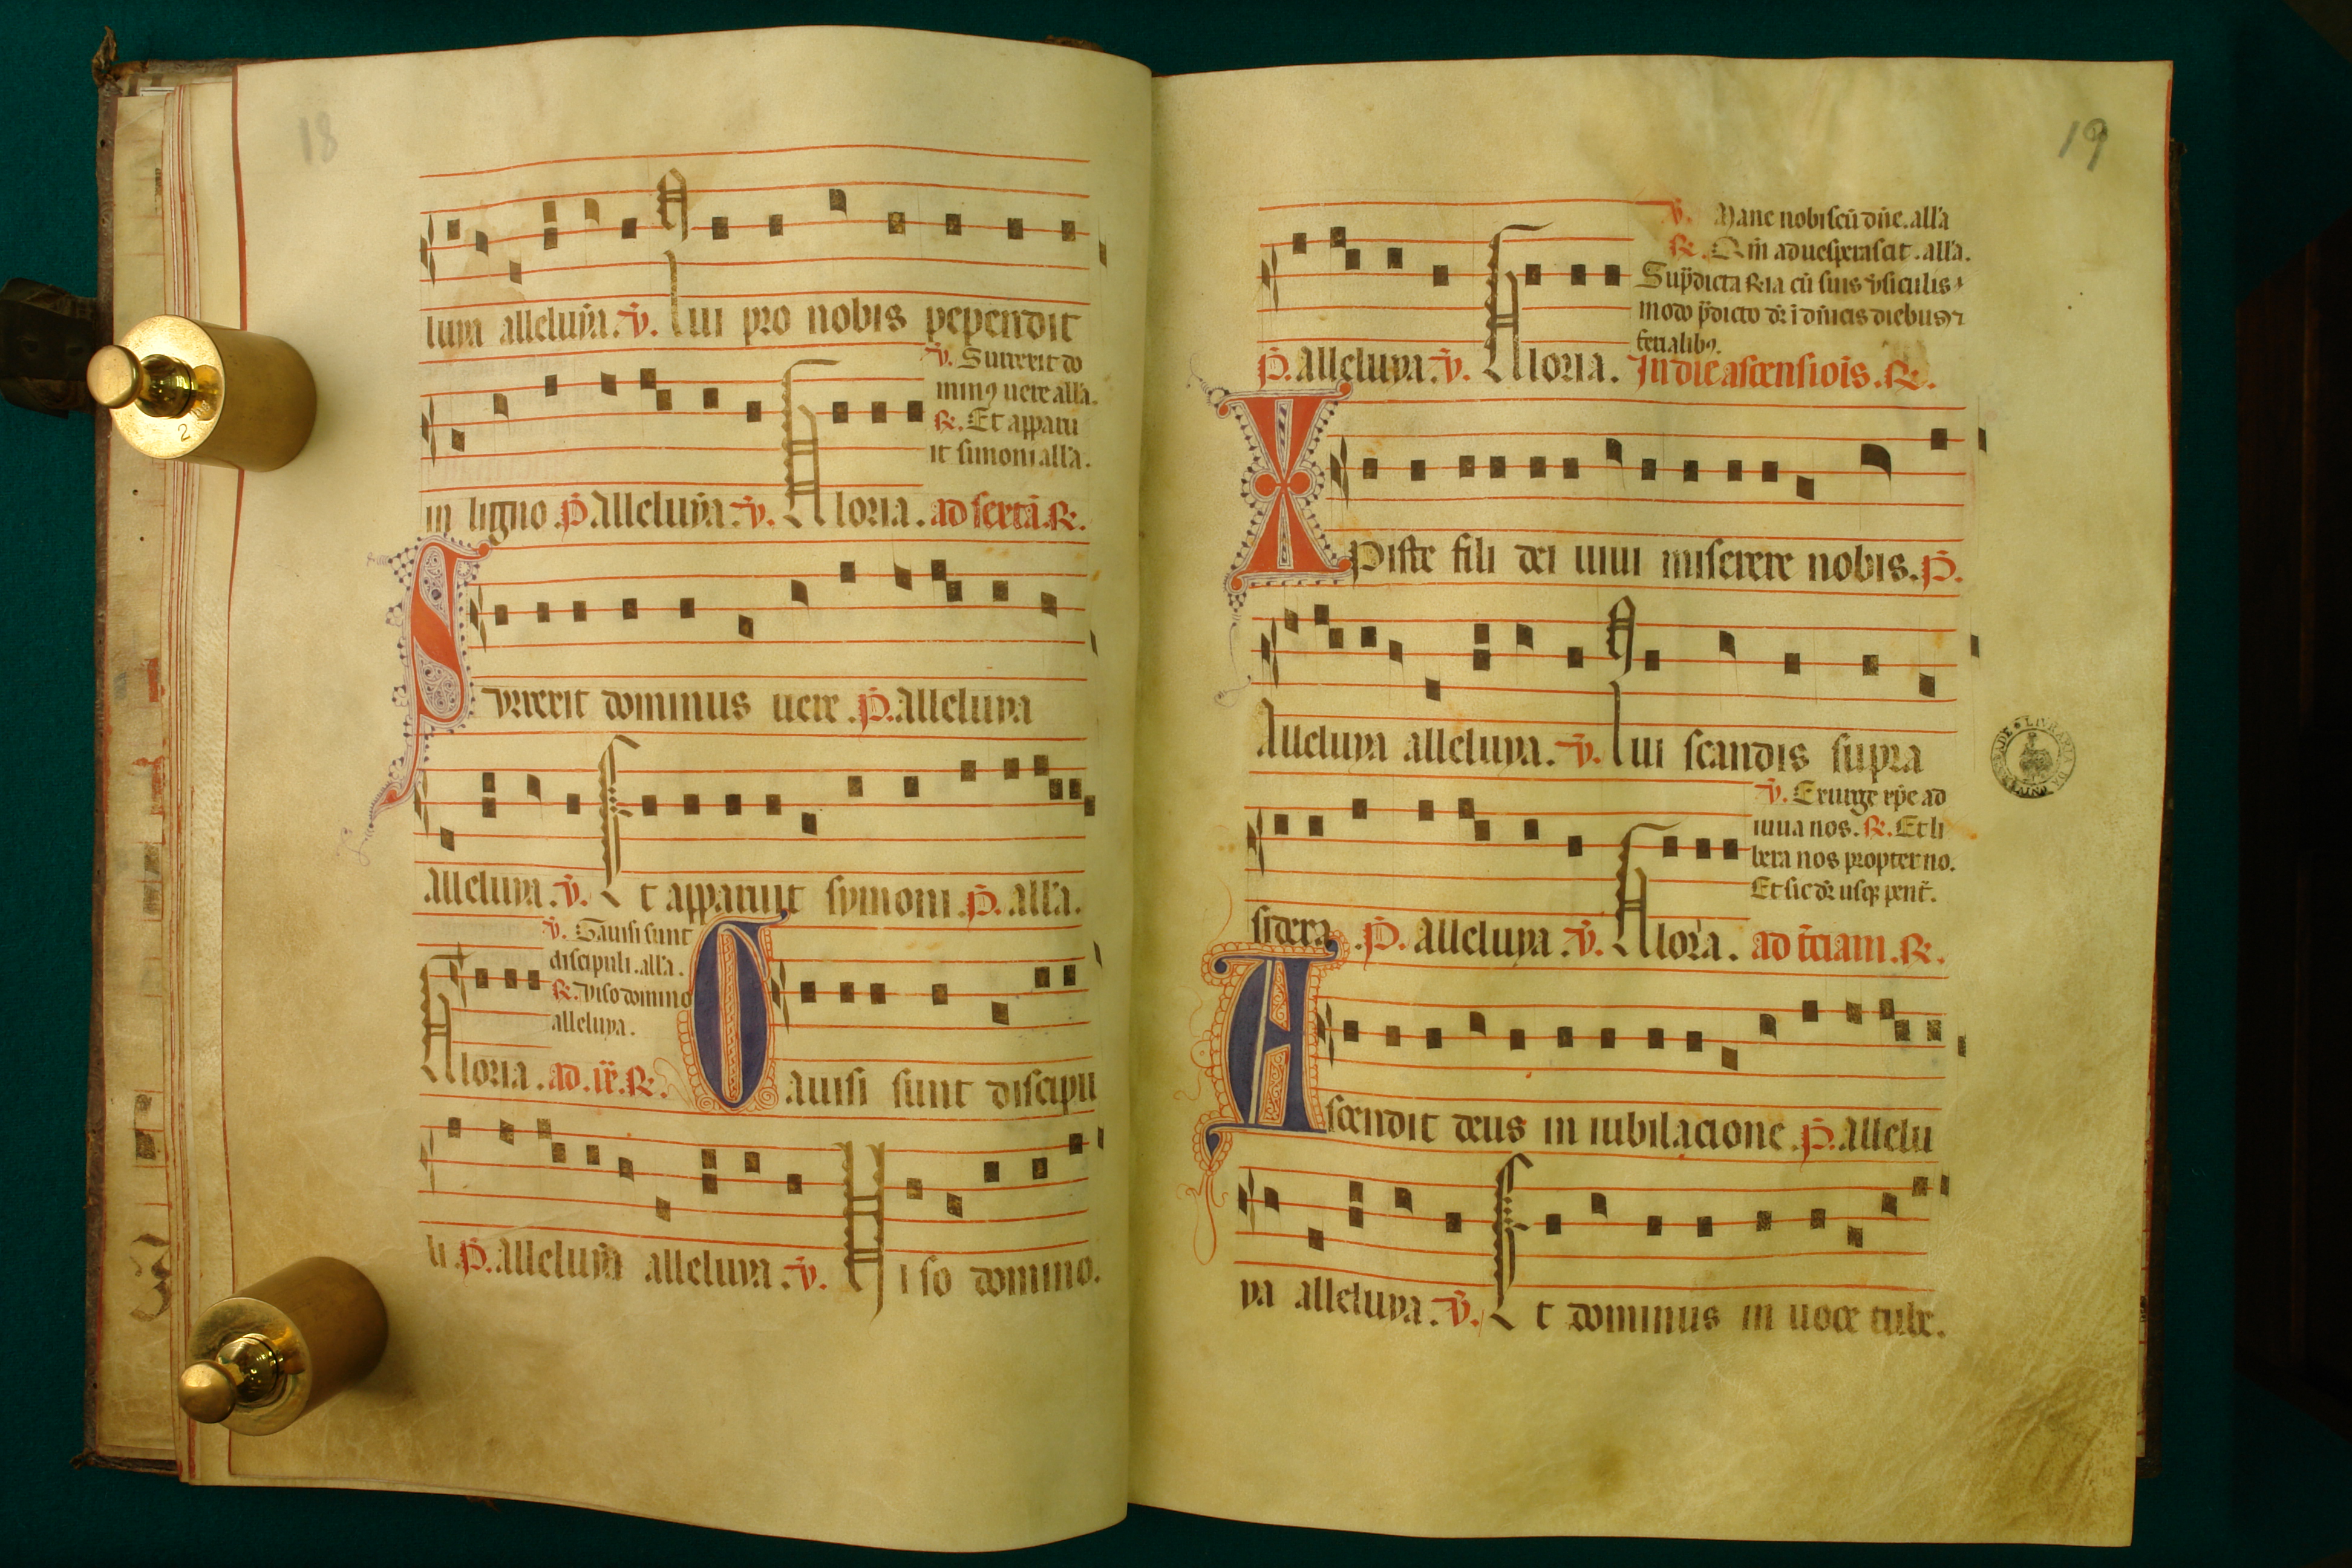 18
luya alleluya. ℣. Qui pro nobis pependit
℣. Surrexit do
minꝰ uere alla.
℟. Et apparu
it simoni alla.
in ligno P. Alleluya. ℣. Gloria. ad sextā. ℟.
Surrexit dominus uere. P. alleluya
alleluya. ℣. Et apparuit symoni. P. alla.
℣. Gauisi sunt
discipuli. alla.
℟. viso domino
alleluya.
Gloria. ad. ix. ℟. Gauisi sunt discipu
li. P. alleluya alleluya. ℣. Viso domino.
19
℣. Mane nobiscū dn̄e. alla
℟. Qm̄ aduesperascit. alla.
Sup̄dicta ℟ia cū suis v̄siculis
modo p̄dicto dr̄ ī dn̄icis diebus ⁊
ferialibꝰ.
P. alleluya. ℣. Gloria. In die ascensiois. ℟.
Xpiste fili dei uiui miserere nobis. P.
Alleluya alleluya. ℣. Qui scandis supra
℣. Exurge xp̄e ad
iuua nos. ℟. Et li
bera nos propter no.
Et sic dr̄ usqꝫ pent̄.
sidera. P. alleluya. ℣. Gloria. ad t̄ciam. ℟.
Ascendit deus in iubilacione. P. allelu
ya alleluya. ℣. Et dominus in uoce tube.